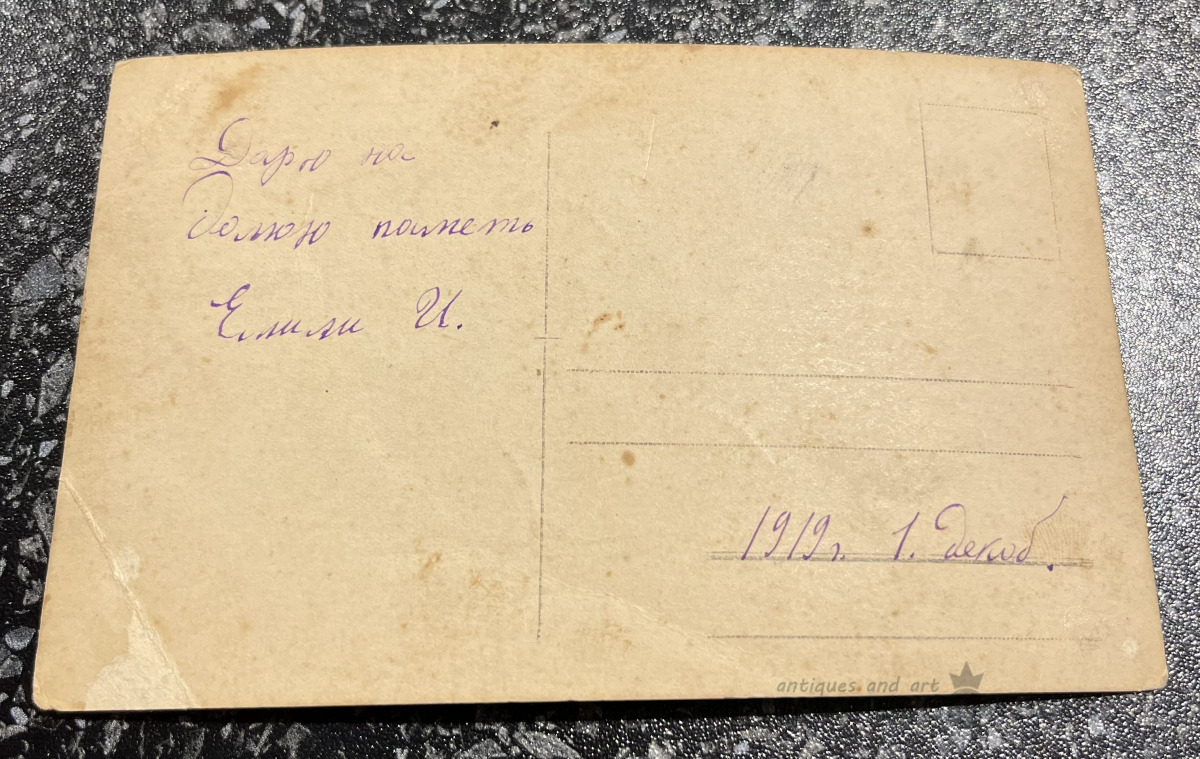 Дарю на
долюю паметь
Емили И.
1919г. 1. декаб.
antiques and art